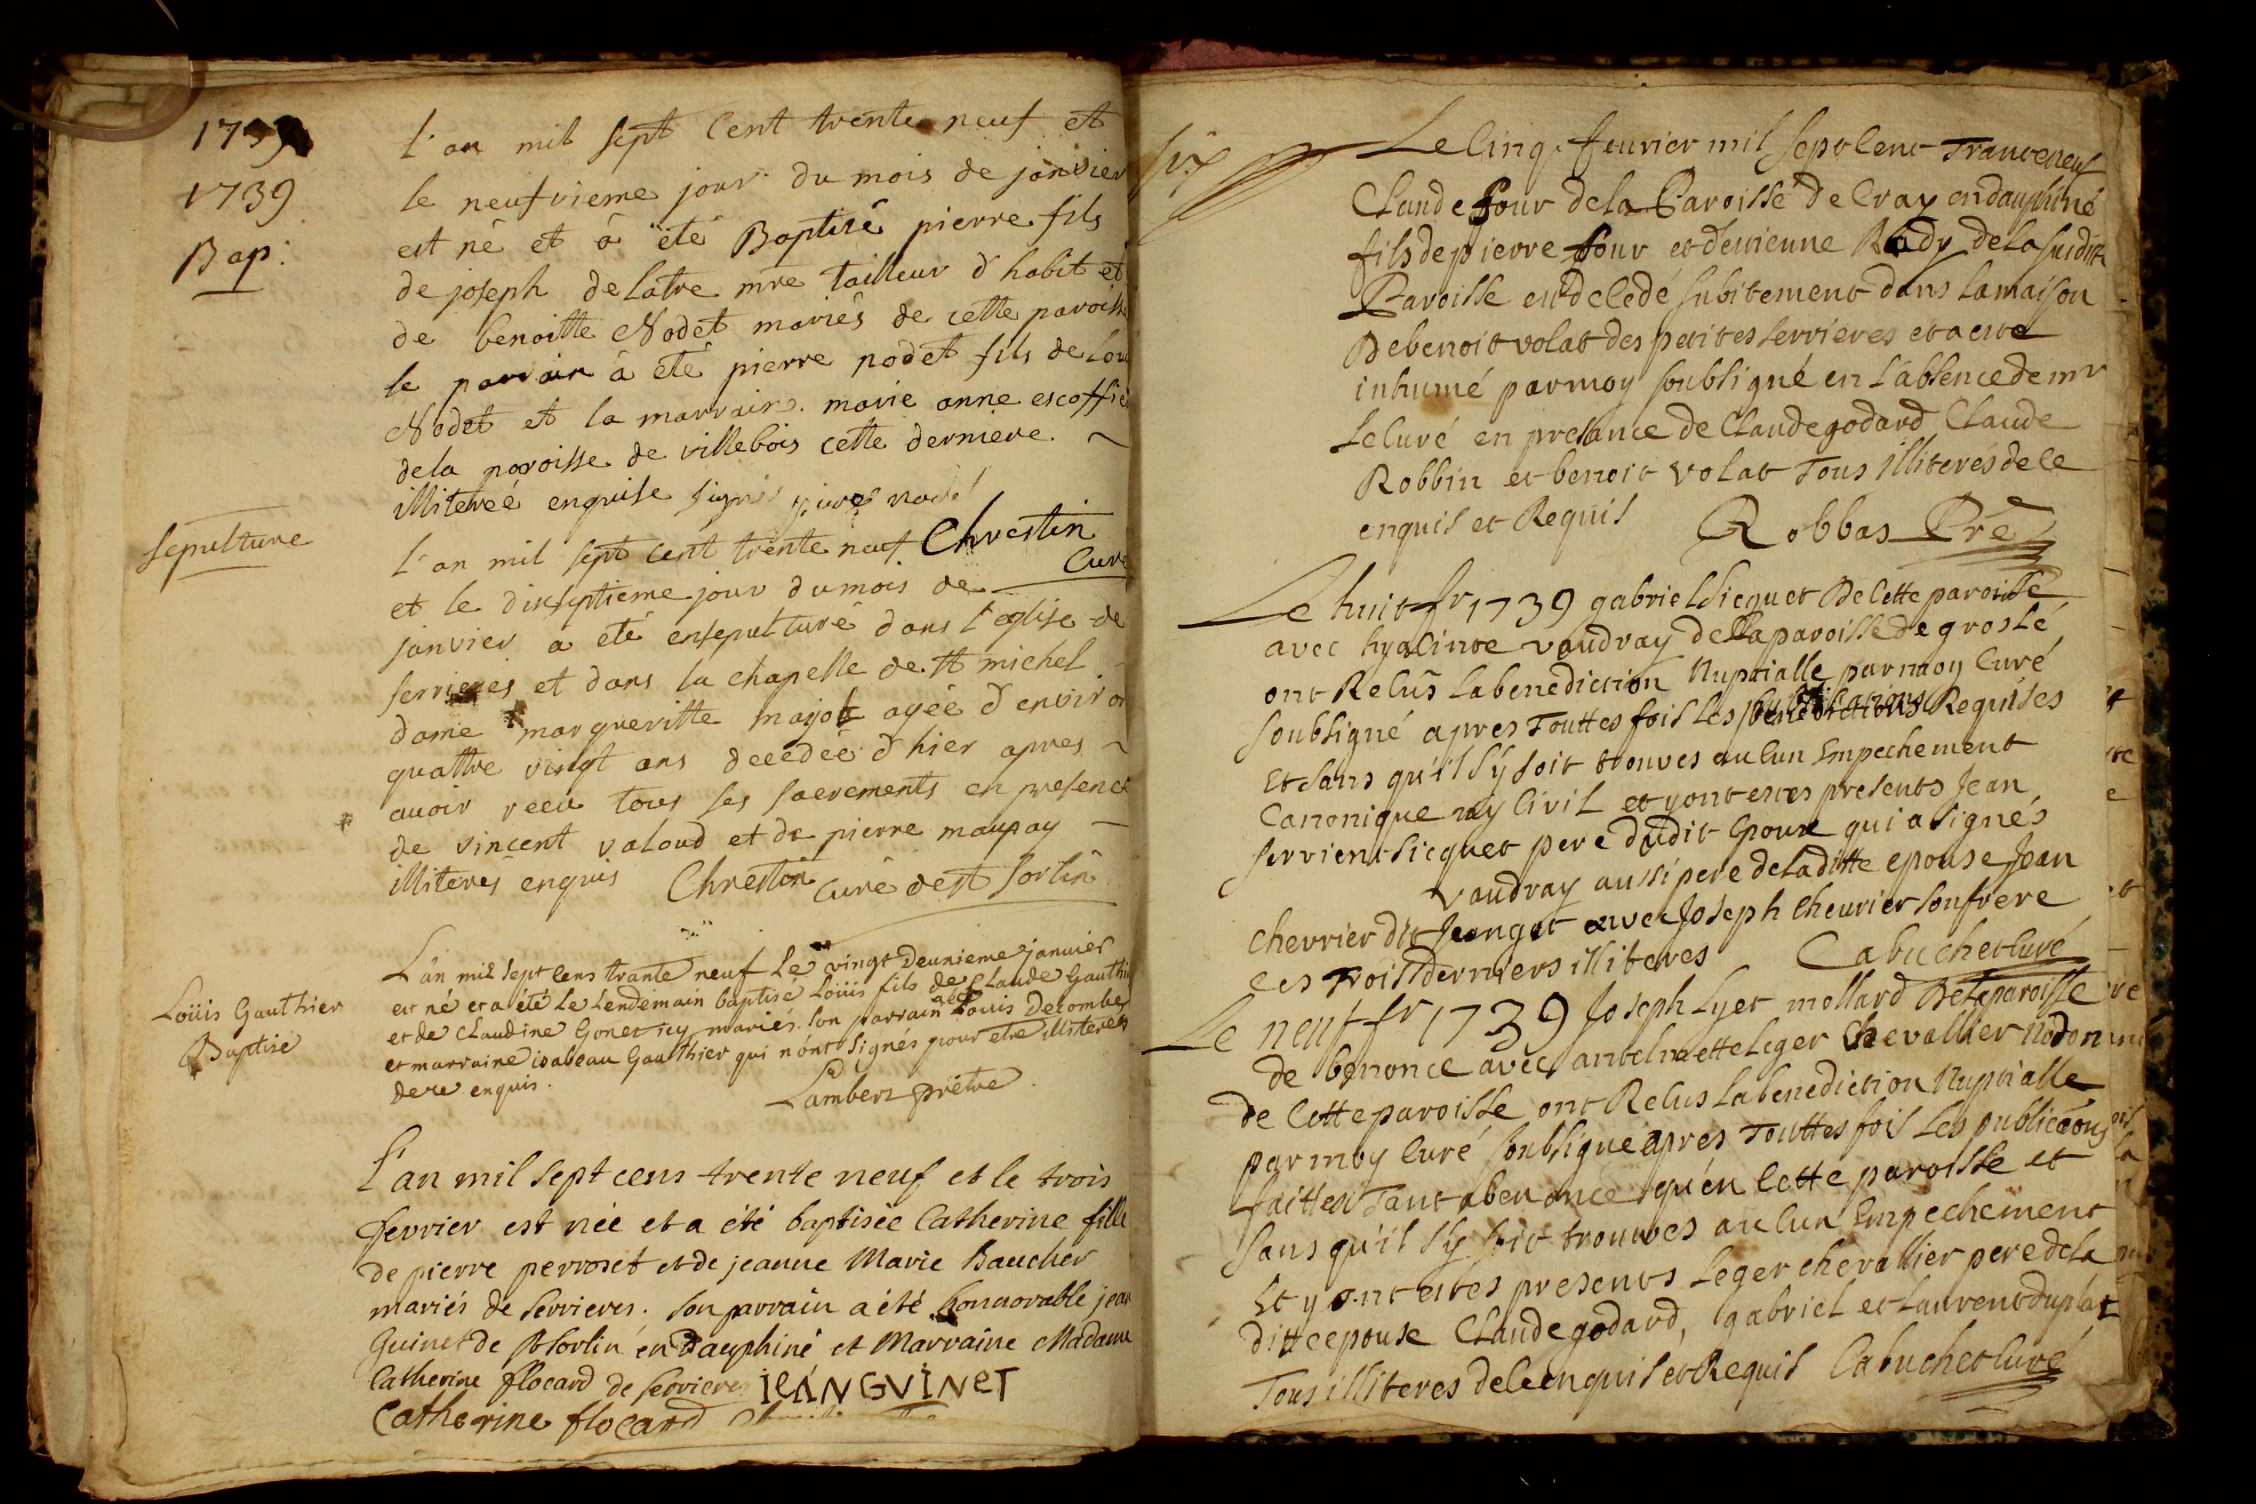 1739
1739
Bap:
L'an mil sept Cent trente neuf et
le neufvieme jour du mois de janvier
est né et à èté Baptisé pierre fils
de joseph delatre mre tailleur d'habit et
de benoitte Nodet mariés de cette paroiss
le parrain à èté pierre nodet fils de Lou
Nodet et la marrain. marie anne escoffie
dela paroisse de villebois cette derniere.
illitereé enquise signés nodet
sepulture
L'an mil sept cent trente neuf Chrestin
Curé
et le dixseptieme jour du mois de
janvier a été ensepulturé dans l'eglise de
serrieres et dans la chapelle de st michel
dame margueritte majot agée d'environ
quattre vingt ans decedée d'hier apres
avoir recu tous ses sacrements en presence
de vincent valoud et de pierre maupay
illiterés enquis Chrestin Curé de st sorlin
Loüis Gauthier
Baptisé
L'an mil sept cens trante neuf Le vingt deuxieme janvier
est né et a été Le Lendemain baptisé Loüis fils de Claude Gauthie
et de Claudine Gonet icy mariés. Son parrain Loüis Decombes
et marraine isabeau Gauthier qui n'ont signés pour etre illiterés
de ce enquis.
Lambert prêtre
L'an mil sept cens trente neuf et le trois
fevrier est née et a été baptisée Catherine fille
de pierre perroset et de jeanne Marie Baucher
mariés de serrieres. Son parrain a été honnorable jean
Guinet de St Sorlin en Dauphiné et Marraine Madame
Catherine flocard de serrieres JEANGVINET
Catherine flocard
six
Le Cinq. feuvrier mil sept Cent Tranteneuf
Claude four dela Paroisse de Cray en dauphiné
fils de pierre four et detienne Rady dela susditte
Paroisse est decedé subitement dans la maison
De benoit volat des petites serrieres et a esté
inhumé par moy soubsigné en l'absence de mr
Le Curé en presance de Claude godard Claude
Robbin et benoit volat Tous illiterés de ce
enquis et Requis Robbas Pre
Le huit fr 1739 gabriel Sicquet De Cette paroisse
avec hyacinte vaudray de La paroisse de groslé
ont Recus La benediction Nuptialle par moy Curé
soubsigné apres Touttes fois Les publications Requises
Et sans qu'il s'y soit trouves aucun Empechement
Canonique ny Civil et y ont estes presents Jean
servient Sicquet pere dudit Epoux qui a signés
vaudray aussi pere de la ditte epouse Jean
chevrier dit Jeanget avec Joseph Cheuvrier son frere
ces trois derniers illiteres Cabuchet Curé
Le neuf fr 1739 Joseph Lyet mollard De La paroisse
de benonce avec antelmette Leger Chevallier Nodon
de Cette paroisse ont Recus La benediction Nuptialle
par moy Curé soubsigné apres Touttes fois Les publicaons
faittes Tant a benonce qu'en Cette paroisse et
sans qu'il s'y soit trouves aucun Empechement
Et y ont estes presents Leger chevallier pere de La
ditte epouse Claude godard, gabriel et Laurent duplat
Tous illiteres de ce enquis et Requis Cabuchet Curé